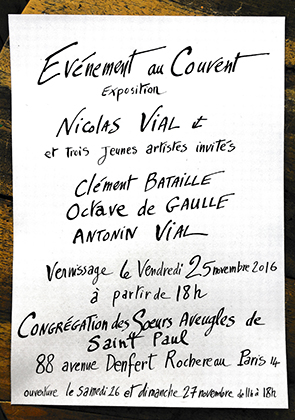 Evénement au Couvent
Exposition
Nicolas Vial &
et trois jeunes artistes invités
Clément BATAILLE
Octave de GAULLE
ANTONIN VIAL
Vernissage le Vendredi 25 novembre 2016
à partir de 18h
CONGRÉGATION des Sœurs Aveugles de
Saint Paul
88 avenue Denfert Rochereau Paris 14
ouverture le samedi 26 et dimanche 27 novembre de 11 à 18h